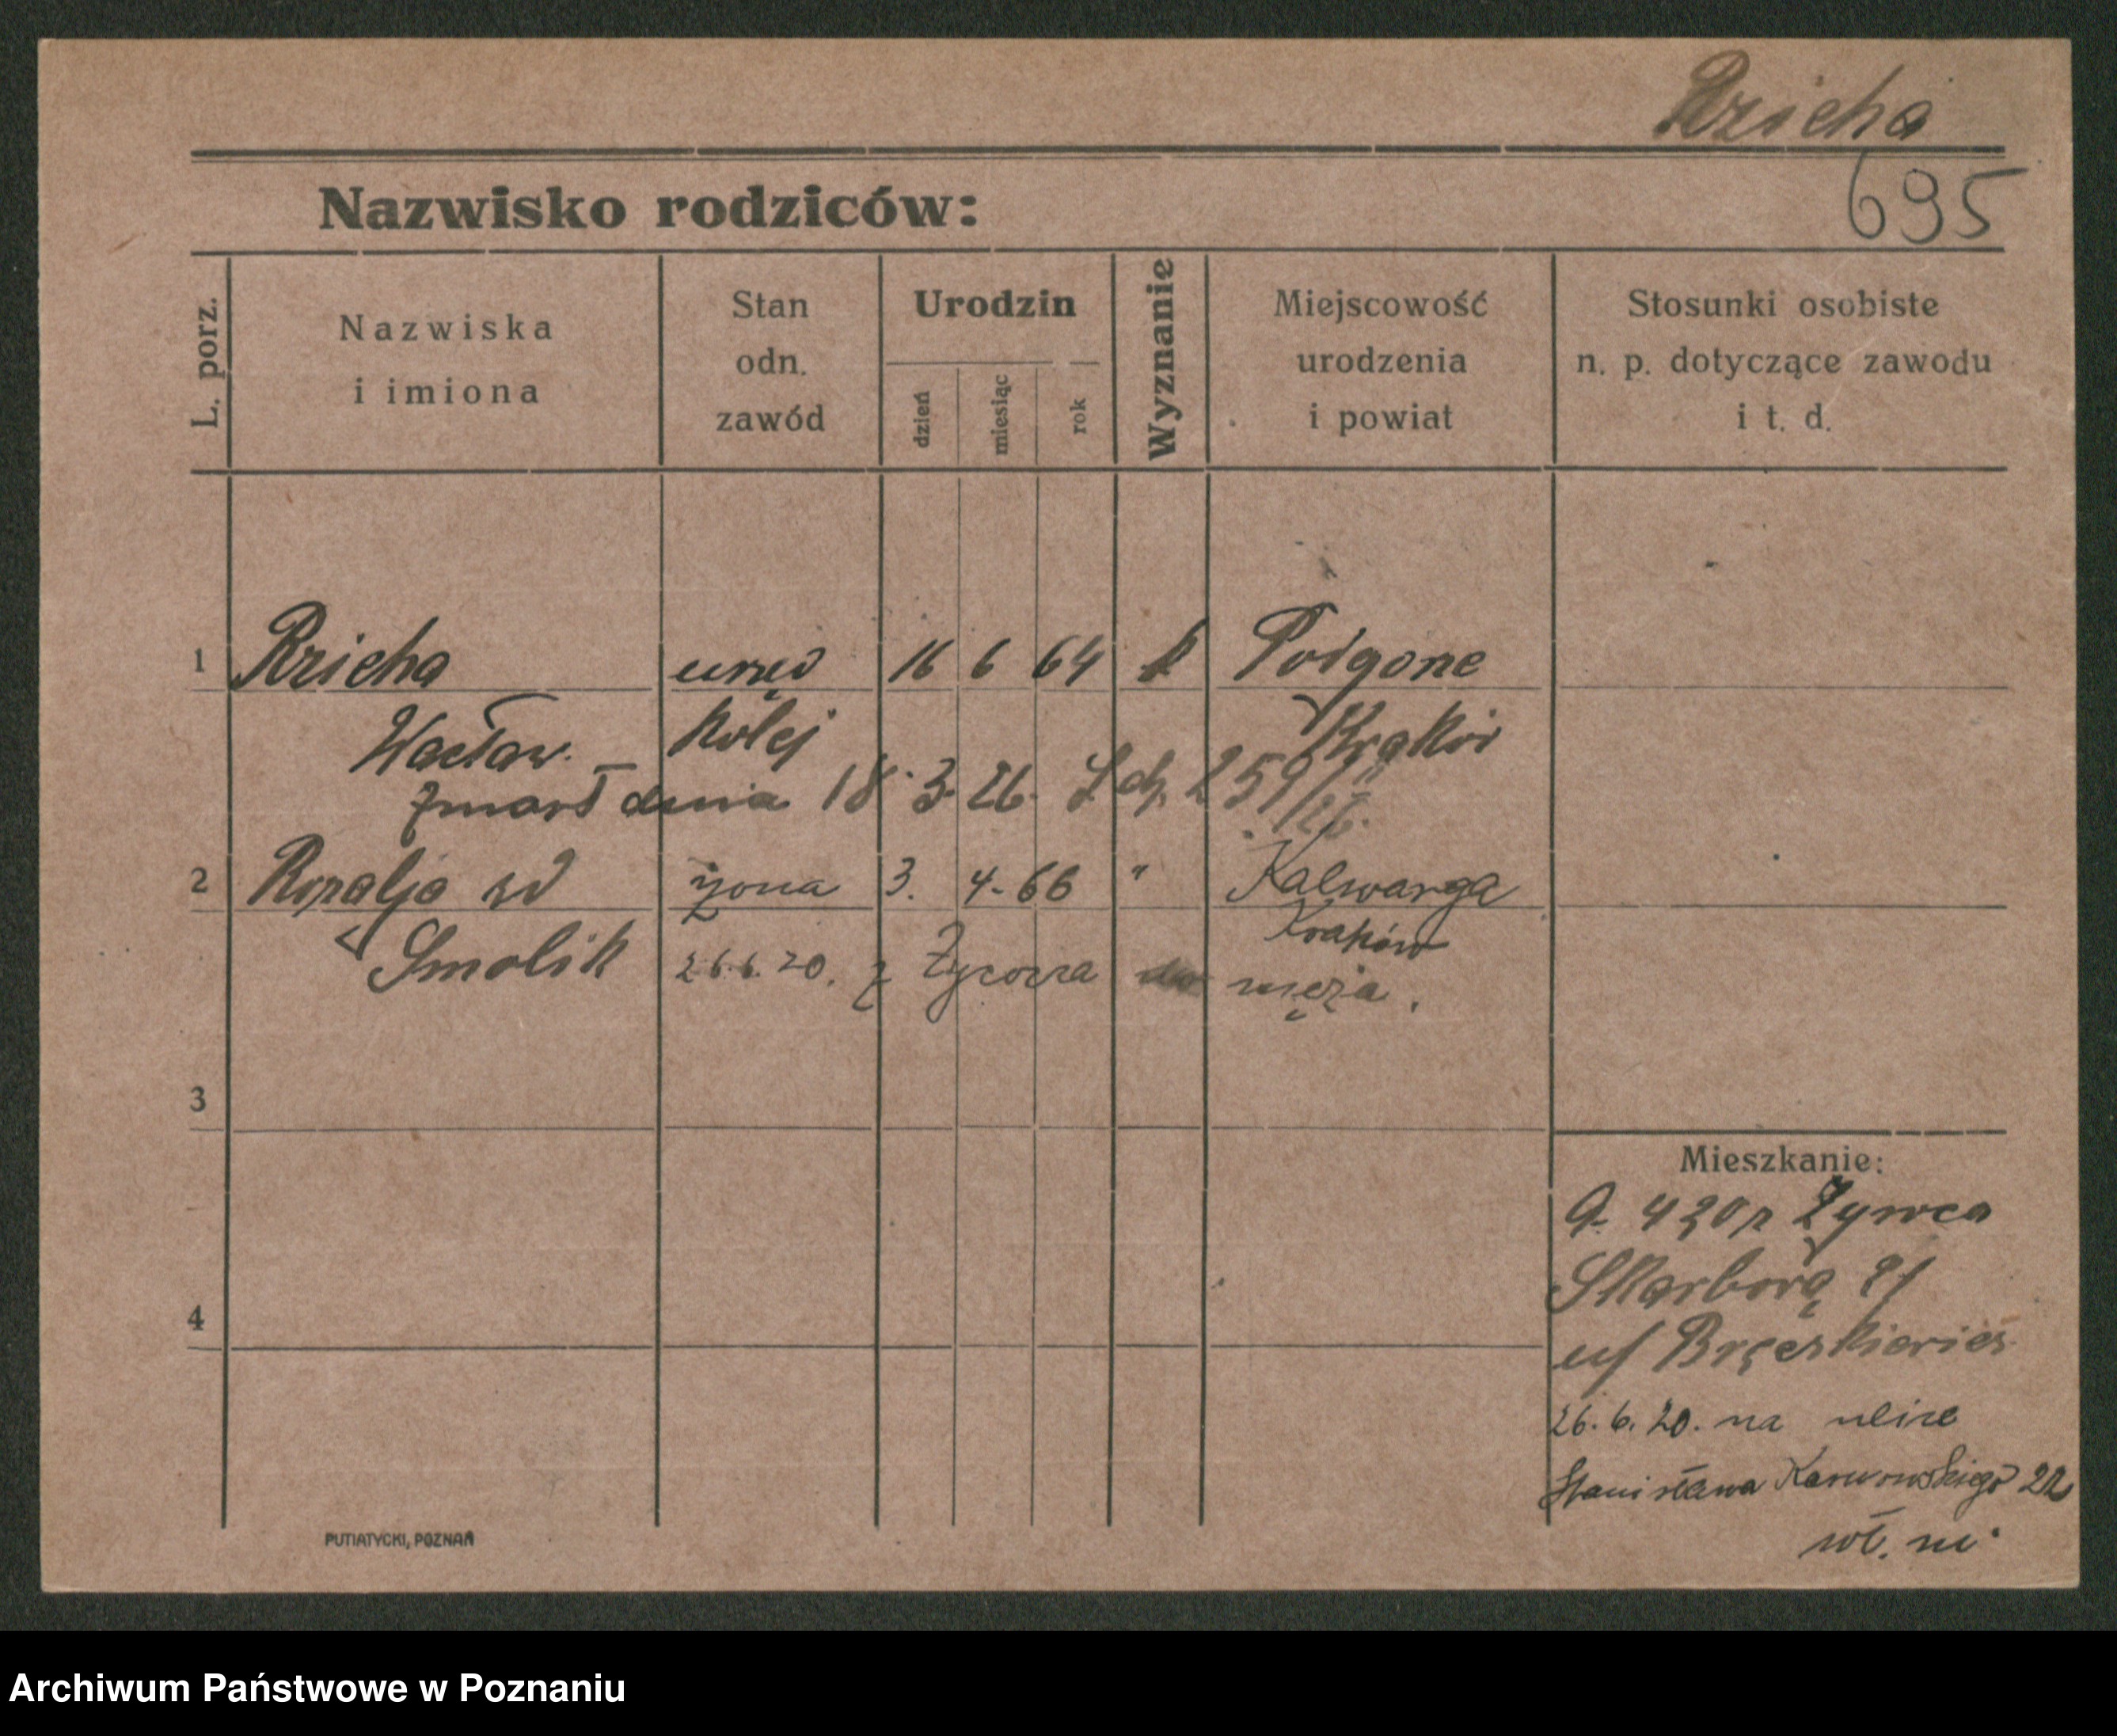 Rzicha
695
Nazwisko rodziców:
L. porz.
Nazwiska
i imiona
Stan
odn.
zawód
Urodzin
dzień
miesiąc
rok
Wyznanie
Miejscowość
urodzenia
i powiat
Stosunki osobiste
n. p. dotyczące zawodu
i t. d.
1 Rzicha urzęd 16 6 64 Podgorze
Wacław Kolej Kraków
zmarł dnia 18. 3. 26. 259/26.
2 Rozalja żona 3. 4. 66 " Kalwarya
Kraków
Smolik 26.6.20. z Żywca do męża.
3
4
Mieszkanie:
9. 4 20 z Żywca
Skarbową 21
26. 6. 20. na ulice
Stanisława Karwowskiego 22
PUTIATYCKI, POZNAŃ
Archiwum Państwowe w Poznaniu